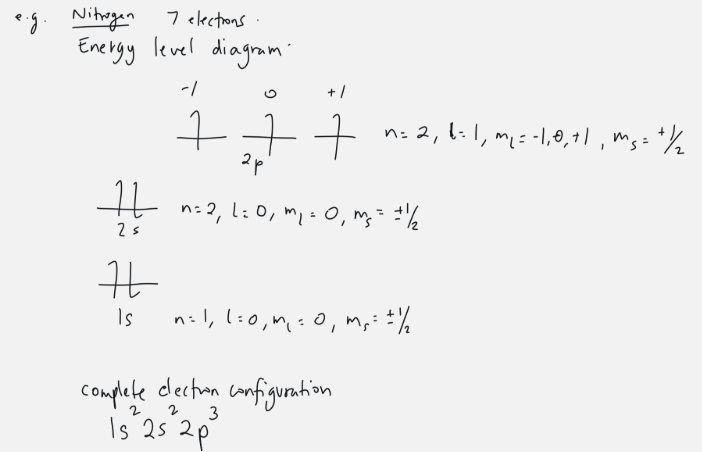 e.g. Nitrogen 7 electrons.
Energy level diagram.
-1 0 +1
n=2, l=1, mₗ=-1,0,+1, mₛ=+1/2
2p
n=2, l=0, mₗ=0, mₛ=±1/2
2s
1s n=1, l=0, mₗ=0, mₛ=±1/2
complete electron configuration
1s² 2s² 2p³